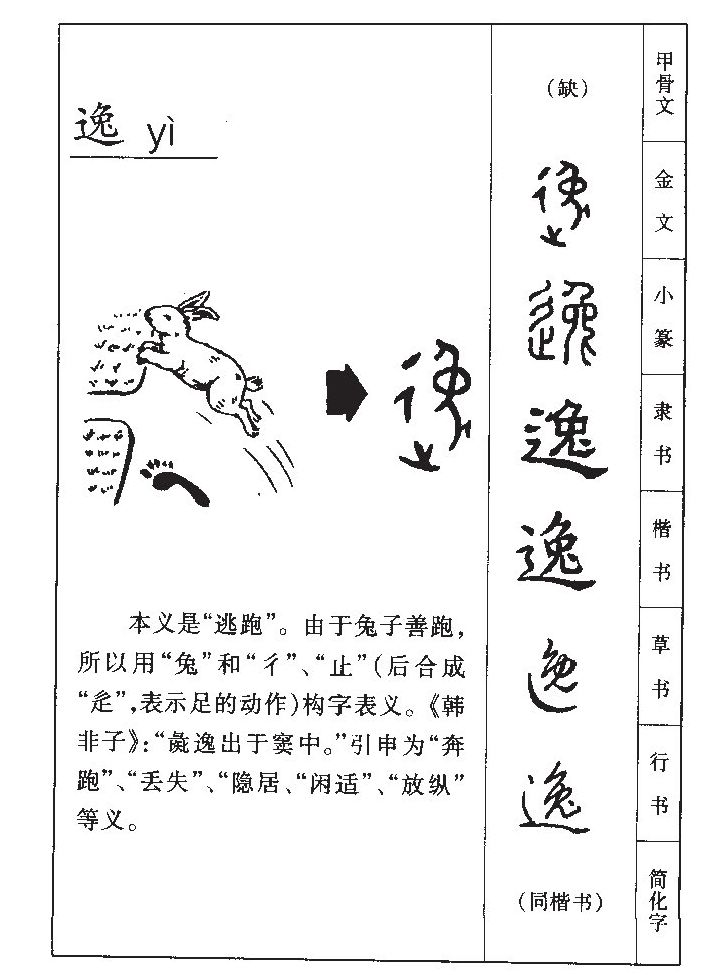 逸 yì
本义是“逃跑”。由于兔子善跑,
所以用“兔”和“彳”、“止”(后合成
“辵”,表示足的动作)构字表义。《韩
非子》:“彘逸出于窦中。”引申为“奔
跑”、“丢失”、“隐居、“闲适”、“放纵”
等义。
(缺)
逸
逸
逸
逸
逸
逸
(同楷书)
甲骨文
金文
小篆
隶书
楷书
草书
行书
简化字